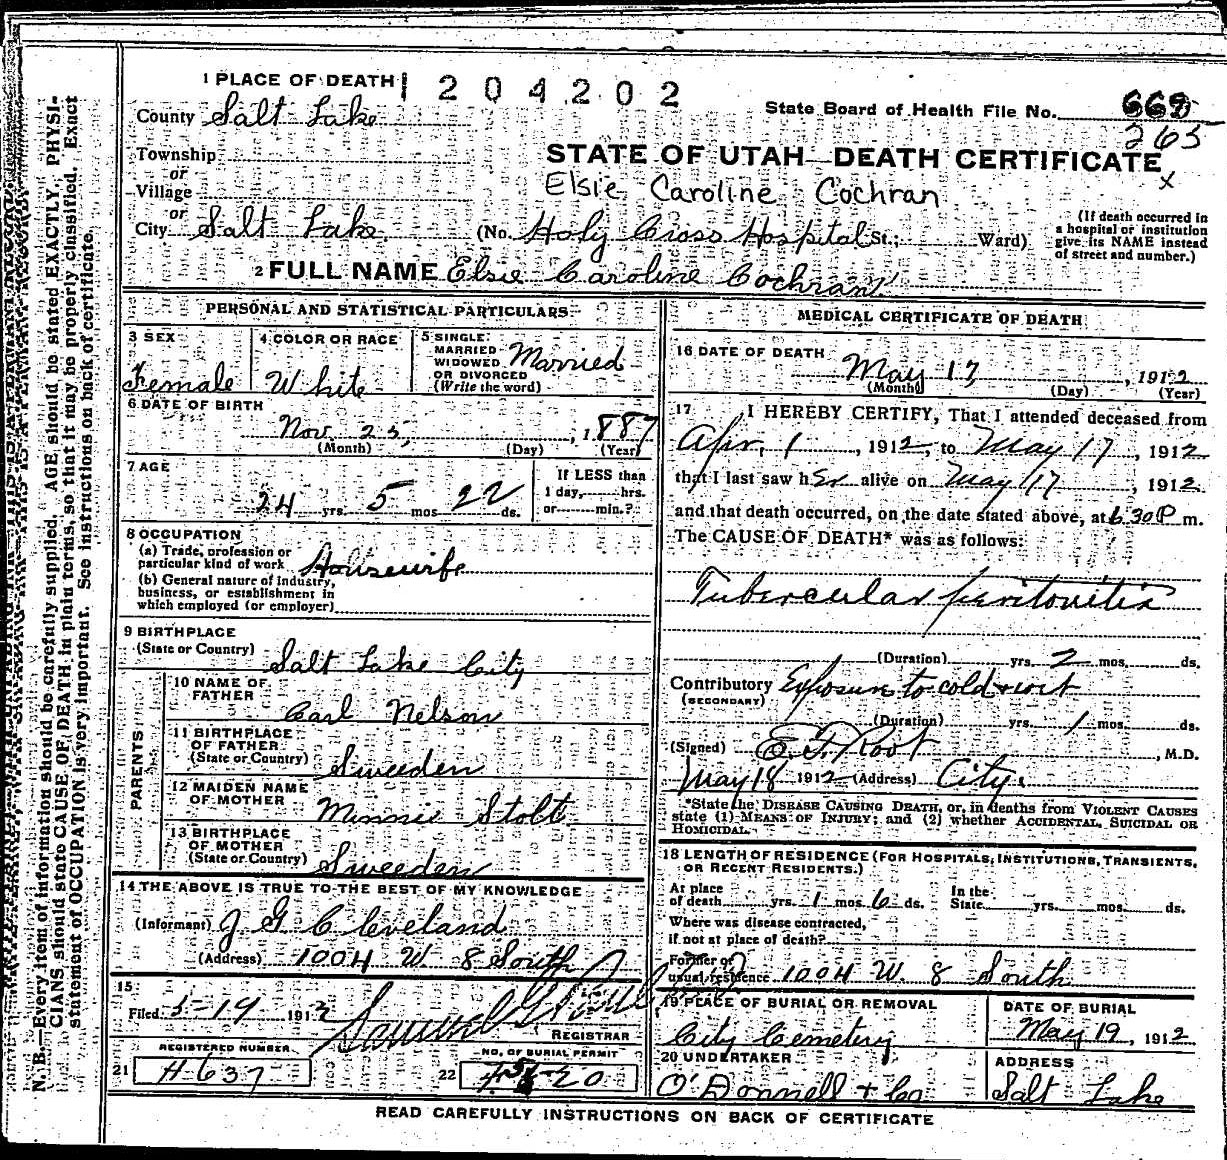 1 PLACE OF DEATH
1204202
State Board of Health File No.
265
County Salt Lake
STATE OF UTAH—DEATH CERTIFICATE
Township
or
Village
Elsie Caroline Cochran
x
or
City Salt Lake (No. Holy Cross Hospital St.; Ward)
(If death occurred in a hospital or institution give its NAME instead of street and number.)
2 FULL NAME Elsie Caroline Cochran
PERSONAL AND STATISTICAL PARTICULARS
3 SEX
Female
4 COLOR OR RACE
White
5 SINGLE
MARRIED
WIDOWED
OR DIVORCED
(Write the word)
Married
6 DATE OF BIRTH
Nov 25, 1887
(Month) (Day) (Year)
7 AGE
24 yrs. 5 mos 22 ds.
If LESS than
1 day, hrs.
or min.?
8 OCCUPATION
(a) Trade, profession or
particular kind of work Housewife
(b) General nature of industry,
business, or establishment in
which employed (or employer)
9 BIRTHPLACE
(State or Country) Salt Lake City
PARENTS
10 NAME OF
FATHER Carl Nelson
11 BIRTHPLACE
OF FATHER
(State or Country) Sweeden
12 MAIDEN NAME
OF MOTHER Minnie Stolt
13 BIRTHPLACE
OF MOTHER
(State or Country) Sweeden
14 THE ABOVE IS TRUE TO THE BEST OF MY KNOWLEDGE
(Informant) J G Cleveland
(Address) 1004 W 8 South
15
Filed 5-19 1912
REGISTRAR
REGISTERED NUMBER
21 H 637
NO. OF BURIAL PERMIT
22
MEDICAL CERTIFICATE OF DEATH
16 DATE OF DEATH
May 17, 1912
(Month) (Day) (Year)
17 I HEREBY CERTIFY, That I attended deceased from
Apr. 1, 1912, to May 17, 1912
that I last saw her alive on May 17, 1912
and that death occurred, on the date stated above, at 6.30 P m.
The CAUSE OF DEATH* was as follows:
Tubercular peritonitis
(Duration) yrs. 2 mos. ds.
Contributory Exposure to cold & wet
(SECONDARY)
(Duration) yrs. 1 mos. ds.
(Signed) E. F. Root, M.D.
May 18 1912 (Address) City.
*State the DISEASE CAUSING DEATH, or, in deaths from VIOLENT CAUSES
state (1) MEANS OF INJURY; and (2) whether ACCIDENTAL, SUICIDAL OR
HOMICIDAL.
18 LENGTH OF RESIDENCE (FOR HOSPITALS, INSTITUTIONS, TRANSIENTS,
OR RECENT RESIDENTS.)
At place
of death yrs. 1 mos. 6 ds. In the
State yrs. mos. ds.
Where was disease contracted,
if not at place of death?
Former or
usual residence 1004 W. 8 South
19 PLACE OF BURIAL OR REMOVAL
City Cemetery
DATE OF BURIAL
May 19, 1912
20 UNDERTAKER
O'Donnell + Co
ADDRESS
Salt Lake
READ CAREFULLY INSTRUCTIONS ON BACK OF CERTIFICATE
N. B.—Every item of information should be carefully supplied. AGE should be stated EXACTLY. PHYSI-
CIANS should state CAUSE OF DEATH in plain terms, so that it may be properly classified. Exact
statement of OCCUPATION is very important. See instructions on back of certificate.